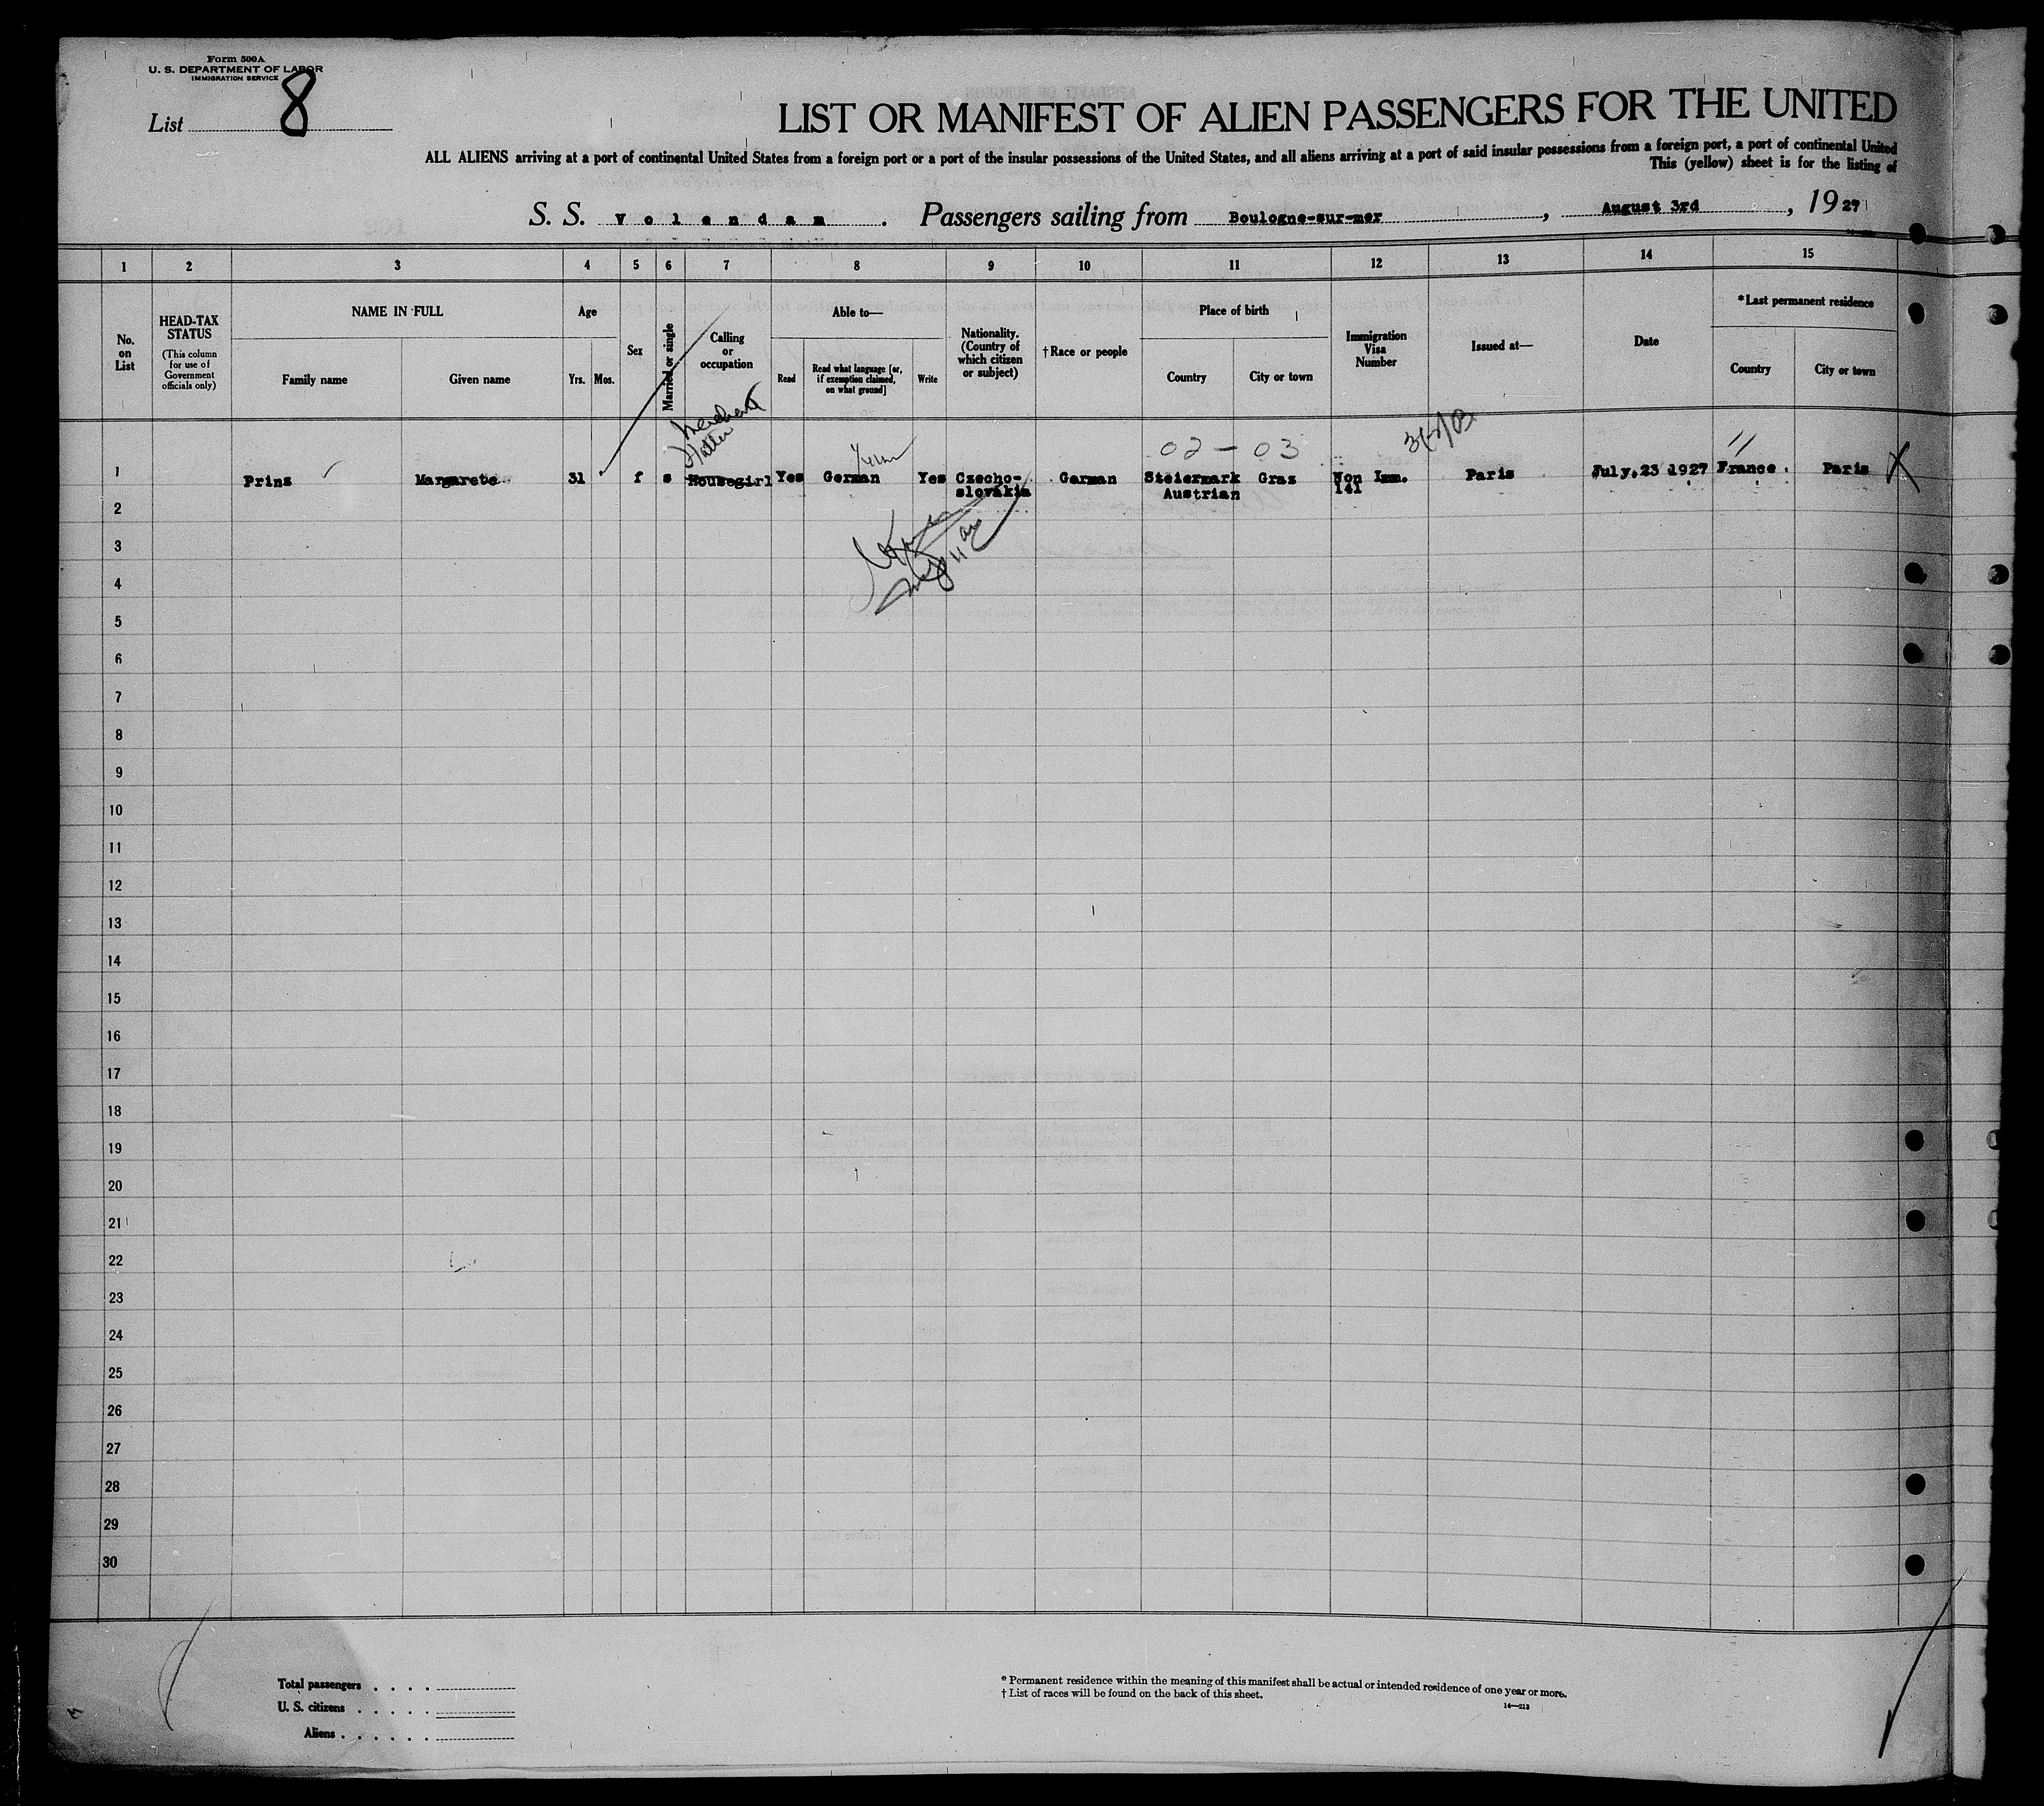 Form 500A
U. S. DEPARTMENT OF LABOR
IMMIGRATION SERVICE
List 8
LIST OR MANIFEST OF ALIEN PASSENGERS FOR THE UNITED
ALL ALIENS arriving at a port of continental United States from a foreign port or a port of the insular possessions of the United States, and all aliens arriving at a port of said insular possessions from a foreign port, a port of continental United
This (yellow) sheet is for the listing of
S. S. Volendam. Passengers sailing from Boulogne-sur-mer, August 3rd, 1927
1 2 3 4 5 6 7 8 9 10 11 12 13 14 15
No. on List
HEAD-TAX STATUS
(This column for use of Government officials only)
NAME IN FULL
Family name
Given name
Age
Yrs.
Mos.
Sex
Married or single
Calling or occupation
Able to—
Read
Read what language [or, if exemption claimed, on what ground]
Write
Nationality. (Country of which citizen or subject)
†Race or people
Place of birth
Country
City or town
Immigration Visa Number
Issued at—
Date
*Last permanent residence
Country
City or town
merchant
02 - 03
1 Prinz Margarete 31 f s Housegirl Yes German Yes Czecho- German Steiermark Graz Non Imm. Paris July.23 1927 France. Paris
slovakia Austrian 141
2
3
4
5
6
7
8
9
10
11
12
13
14
15
16
17
18
19
20
21
22
23
24
25
26
27
28
29
30
Total passengers . . . .
U. S. citizens . . . . .
Aliens . . . . . .
* Permanent residence within the meaning of this manifest shall be actual or intended residence of one year or more.
† List of races will be found on the back of this sheet.
14—213